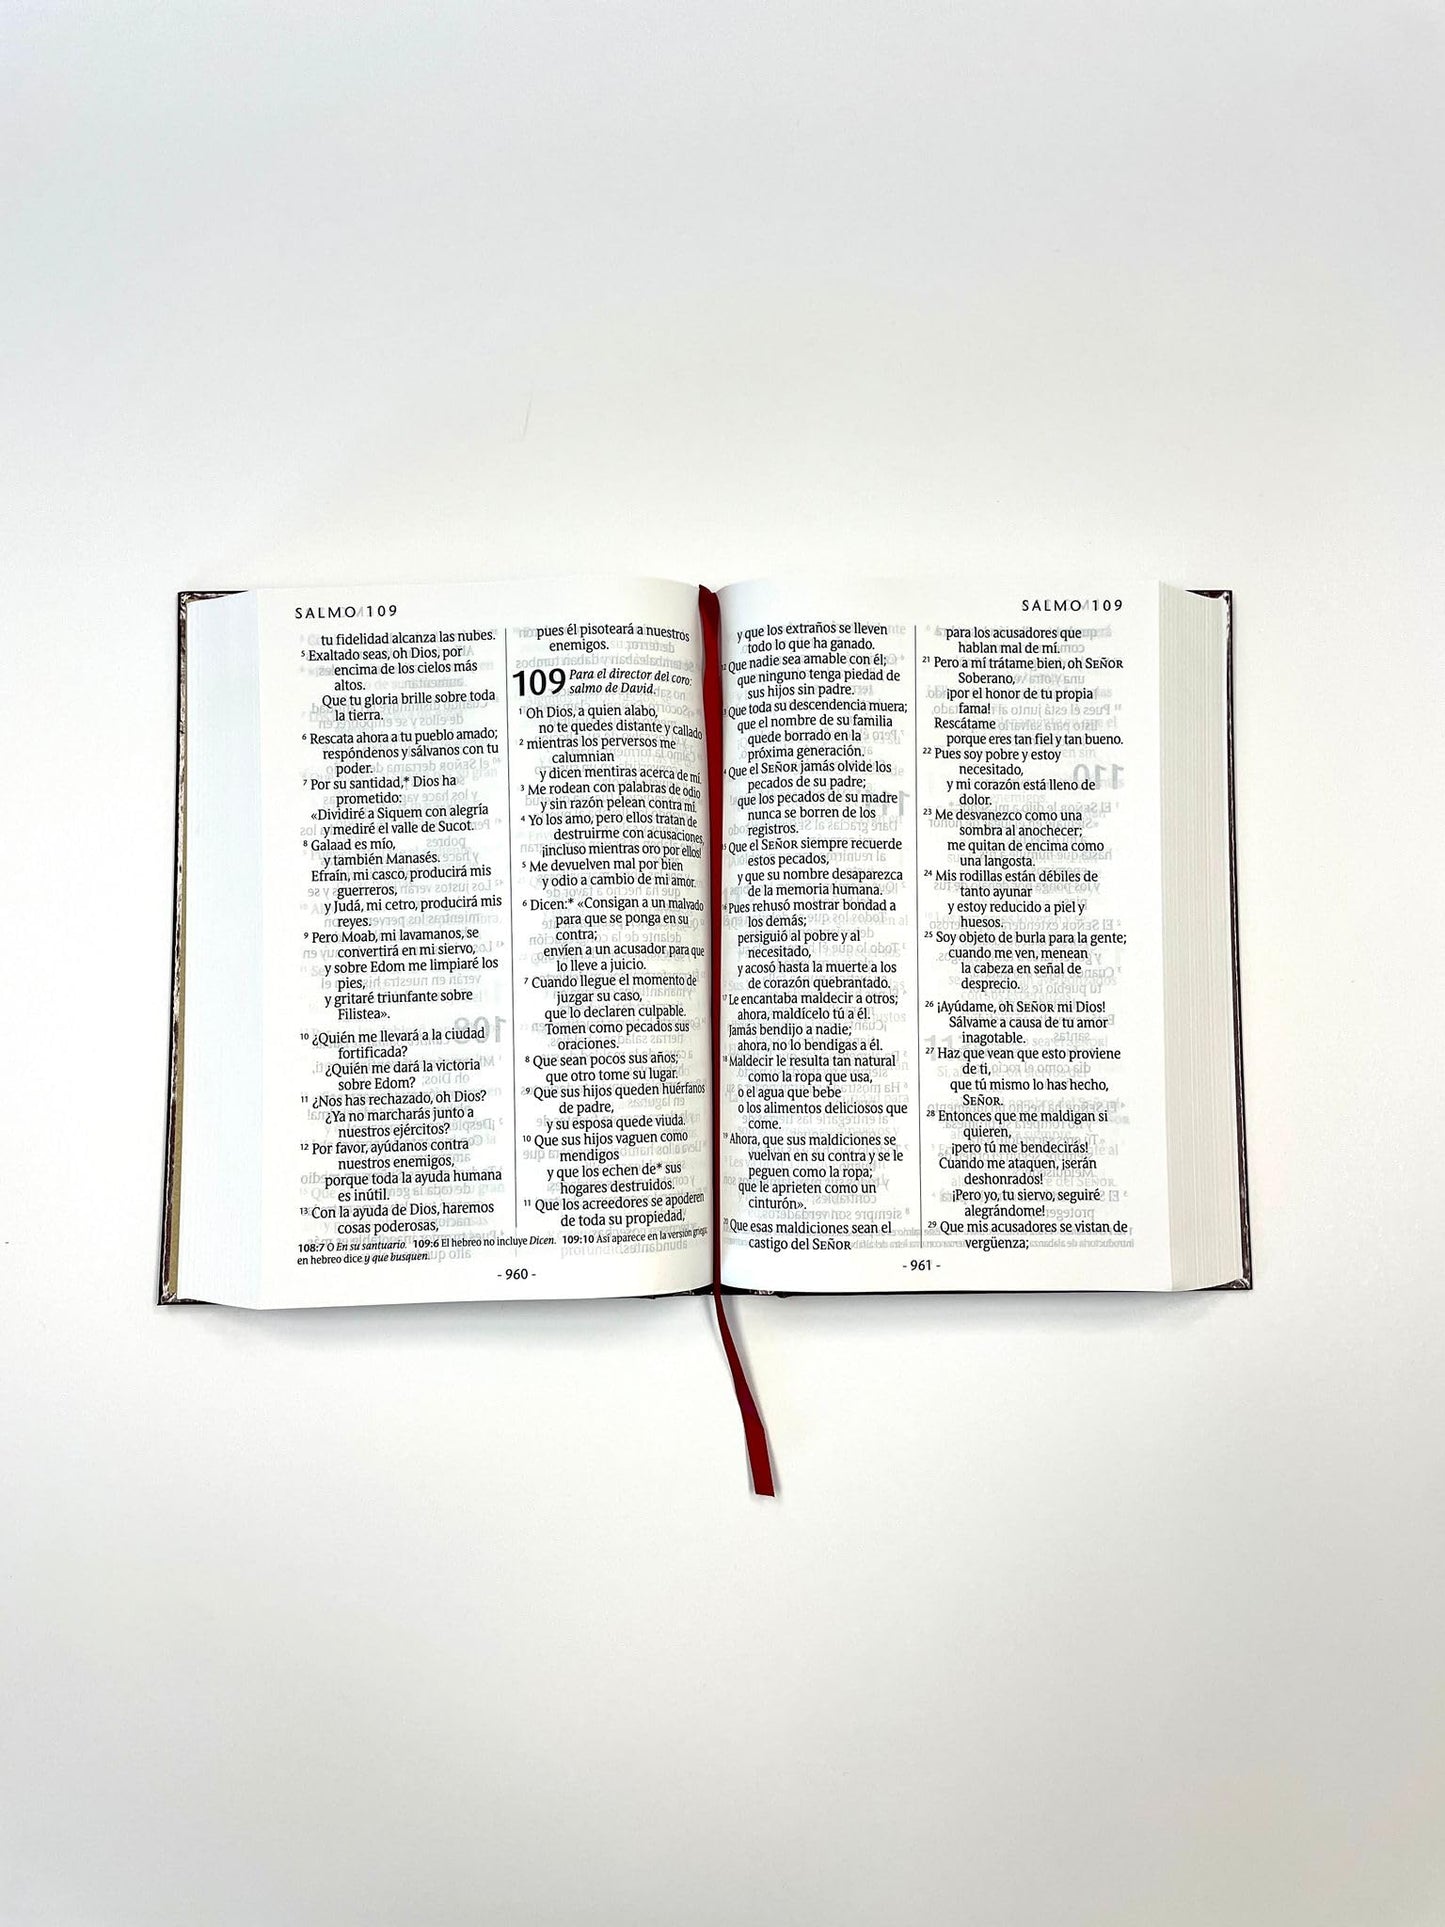 SALMO 109
tu fidelidad alcanza las nubes.
5 Exaltado seas, oh Dios, por
encima de los cielos más
altos.
Que tu gloria brille sobre toda
la tierra.
6 Rescata ahora a tu pueblo amado;
respóndenos y sálvanos con tu
poder.
7 Por su santidad,* Dios ha
prometido:
«Dividiré a Siquem con alegría
y mediré el valle de Sucot.
8 Galaad es mío,
y también Manasés.
Efraín, mi casco, producirá mis
guerreros,
y Judá, mi cetro, producirá mis
reyes.
9 Pero Moab, mi lavamanos, se
convertirá en mi siervo,
y sobre Edom me limpiaré los
pies,
y gritaré triunfante sobre
Filistea».
10 ¿Quién me llevará a la ciudad
fortificada?
¿Quién me dará la victoria
sobre Edom?
11 ¿Nos has rechazado, oh Dios?
¿Ya no marcharás junto a
nuestros ejércitos?
12 Por favor, ayúdanos contra
nuestros enemigos,
porque toda la ayuda humana
es inútil.
13 Con la ayuda de Dios, haremos
cosas poderosas,
pues él pisoteará a nuestros
enemigos.
109 Para el director del coro:
salmo de David.
1 Oh Dios, a quien alabo,
no te quedes distante y callado
2 mientras los perversos me
calumnian
y dicen mentiras acerca de mí.
3 Me rodean con palabras de odio
y sin razón pelean contra mí.
4 Yo los amo, pero ellos tratan de
destruirme con acusaciones,
¡incluso mientras oro por ellos!
5 Me devuelven mal por bien
y odio a cambio de mi amor.
6 Dicen:* «Consigan a un malvado
para que se ponga en su
contra;
envíen a un acusador para que
lo lleve a juicio.
7 Cuando llegue el momento de
juzgar su caso,
que lo declaren culpable.
Tomen como pecados sus
oraciones.
8 Que sean pocos sus años;
que otro tome su lugar.
9 Que sus hijos queden huérfanos
de padre,
y su esposa quede viuda.
10 Que sus hijos vaguen como
mendigos
y que los echen de* sus
hogares destruidos.
11 Que los acreedores se apoderen
de toda su propiedad,
108:7 O En su santuario. 109:6 El hebreo no incluye Dicen. 109:10 Así aparece en la versión griega;
en hebreo dice y que busquen.
- 960 -
SALMO 109
y que los extraños se lleven
todo lo que ha ganado.
12 Que nadie sea amable con él;
que ninguno tenga piedad de
sus hijos sin padre.
Que toda su descendencia muera;
que el nombre de su familia
quede borrado en la
próxima generación.
Que el SEÑOR jamás olvide los
pecados de su padre;
que los pecados de su madre
nunca se borren de los
registros.
Que el SEÑOR siempre recuerde
estos pecados,
y que su nombre desaparezca
de la memoria humana.
16 Pues rehusó mostrar bondad a
los demás;
persiguió al pobre y al
necesitado,
y acosó hasta la muerte a los
de corazón quebrantado.
17 Le encantaba maldecir a otros;
ahora, maldícelo tú a él.
Jamás bendijo a nadie;
ahora, no lo bendigas a él.
18 Maldecir le resulta tan natural
como la ropa que usa,
o el agua que bebe
o los alimentos deliciosos que
come.
19 Ahora, que sus maldiciones se
vuelvan en su contra y se le
peguen como la ropa;
que le aprieten como un
cinturón».
20 Que esas maldiciones sean el
castigo del SEÑOR
para los acusadores que
hablan mal de mí.
21 Pero a mí trátame bien, oh SEÑOR
Soberano,
¡por el honor de tu propia
fama!
Rescátame
porque eres tan fiel y tan bueno.
22 Pues soy pobre y estoy
necesitado,
y mi corazón está lleno de
dolor.
23 Me desvanezco como una
sombra al anochecer;
me quitan de encima como
una langosta.
24 Mis rodillas están débiles de
tanto ayunar
y estoy reducido a piel y
huesos.
25 Soy objeto de burla para la gente;
cuando me ven, menean
la cabeza en señal de
desprecio.
26 ¡Ayúdame, oh SEÑOR mi Dios!
Sálvame a causa de tu amor
inagotable.
27 Haz que vean que esto proviene
de ti,
que tú mismo lo has hecho,
SEÑOR.
28 Entonces que me maldigan si
quieren,
¡pero tú me bendecirás!
Cuando me ataquen, ¡serán
deshonrados!
¡Pero yo, tu siervo, seguiré
alegrándome!
29 Que mis acusadores se vistan de
vergüenza;
- 961 -